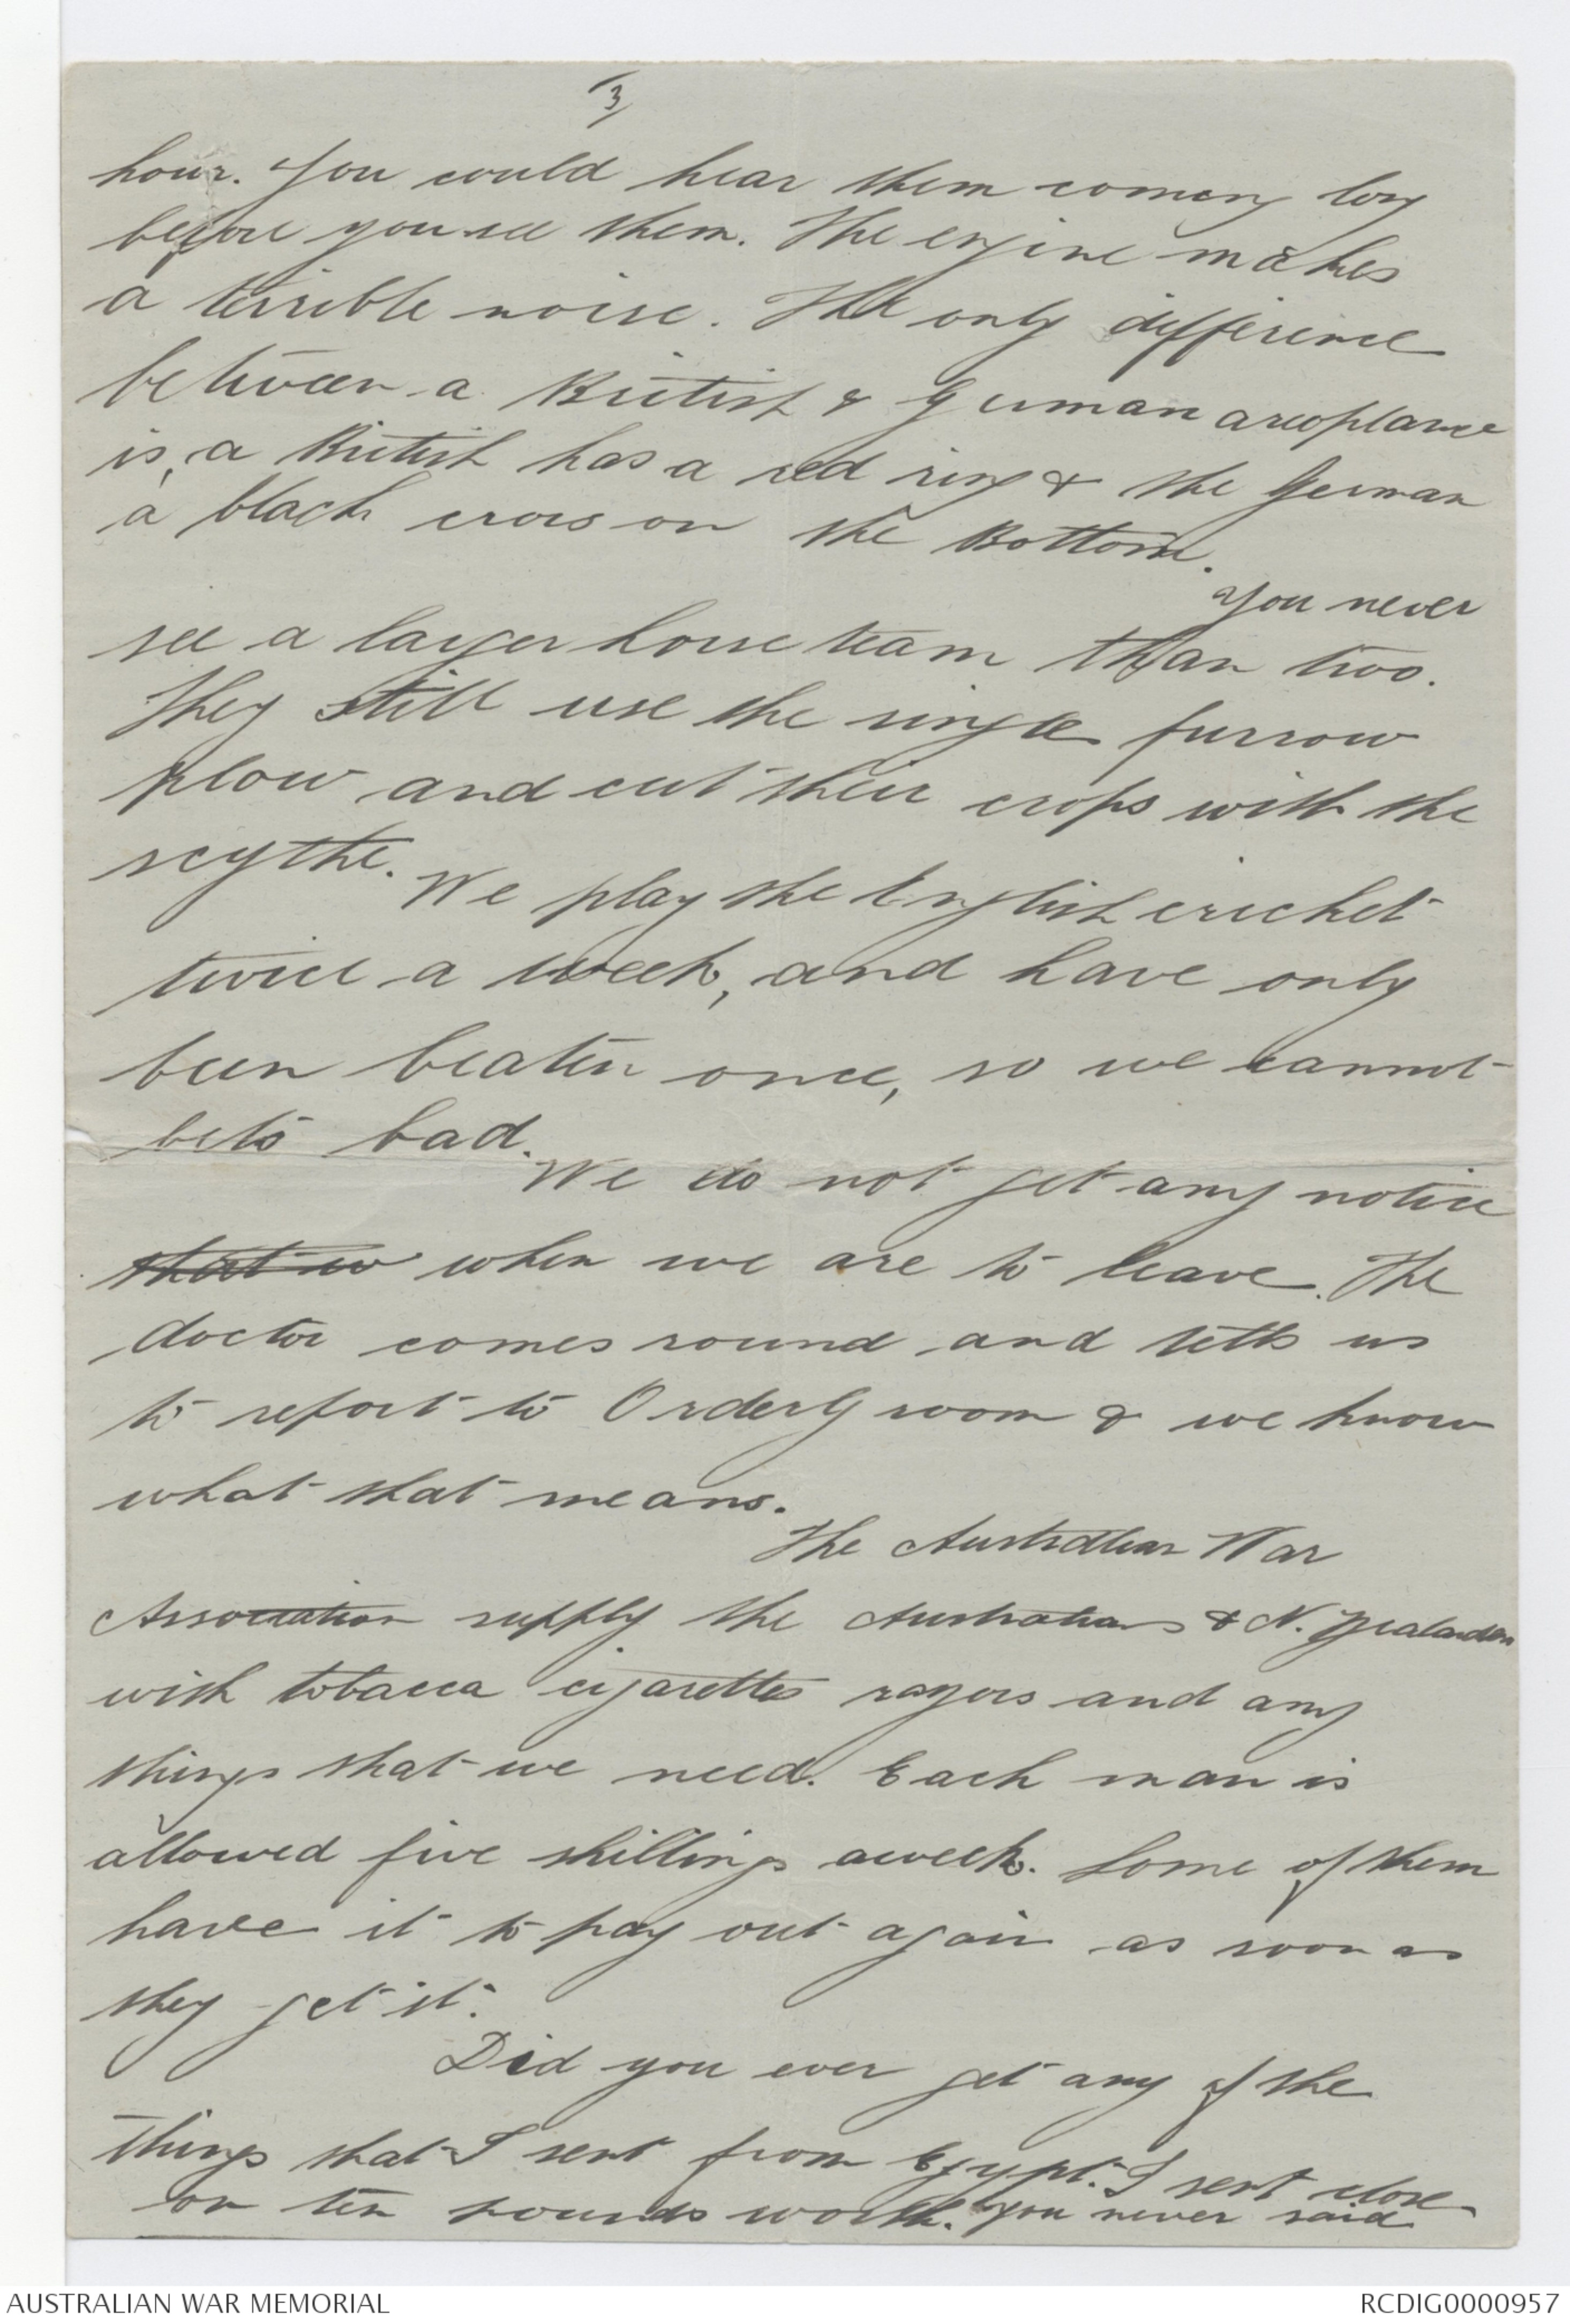 3/
hour. You could hear them comeng long
before you see them. The engine makes
a terrible noise. The only difference
between a British & German areoplane
is, a British has a red ring & the German
a black cross on the Bottom.
You never
see a larger horse team than two.
They still use the single furrow
plow and cut their crops with the
scythe.
We play the English cricket
twice a week, and have only
been beaten once, so we cannot
be to bad.
We do not get any notice
that w when we are to leave. The
doctor comes round and tells us
to report to Orderly room & we know
what that means.
The Australian War
Association supply the Australians & N. Zealanders
with tobacca cigarettes razors and any
things that we need. Each man is
allowed five shillings aweek. Some of them
have it to pay out again as soon as
they get it.
Did you ever get any of the
things that I sent from Egypt. I sent close
on ten pounds worth. You never said
AUSTRALIAN WAR MEMORIAL
RCDIG0000957